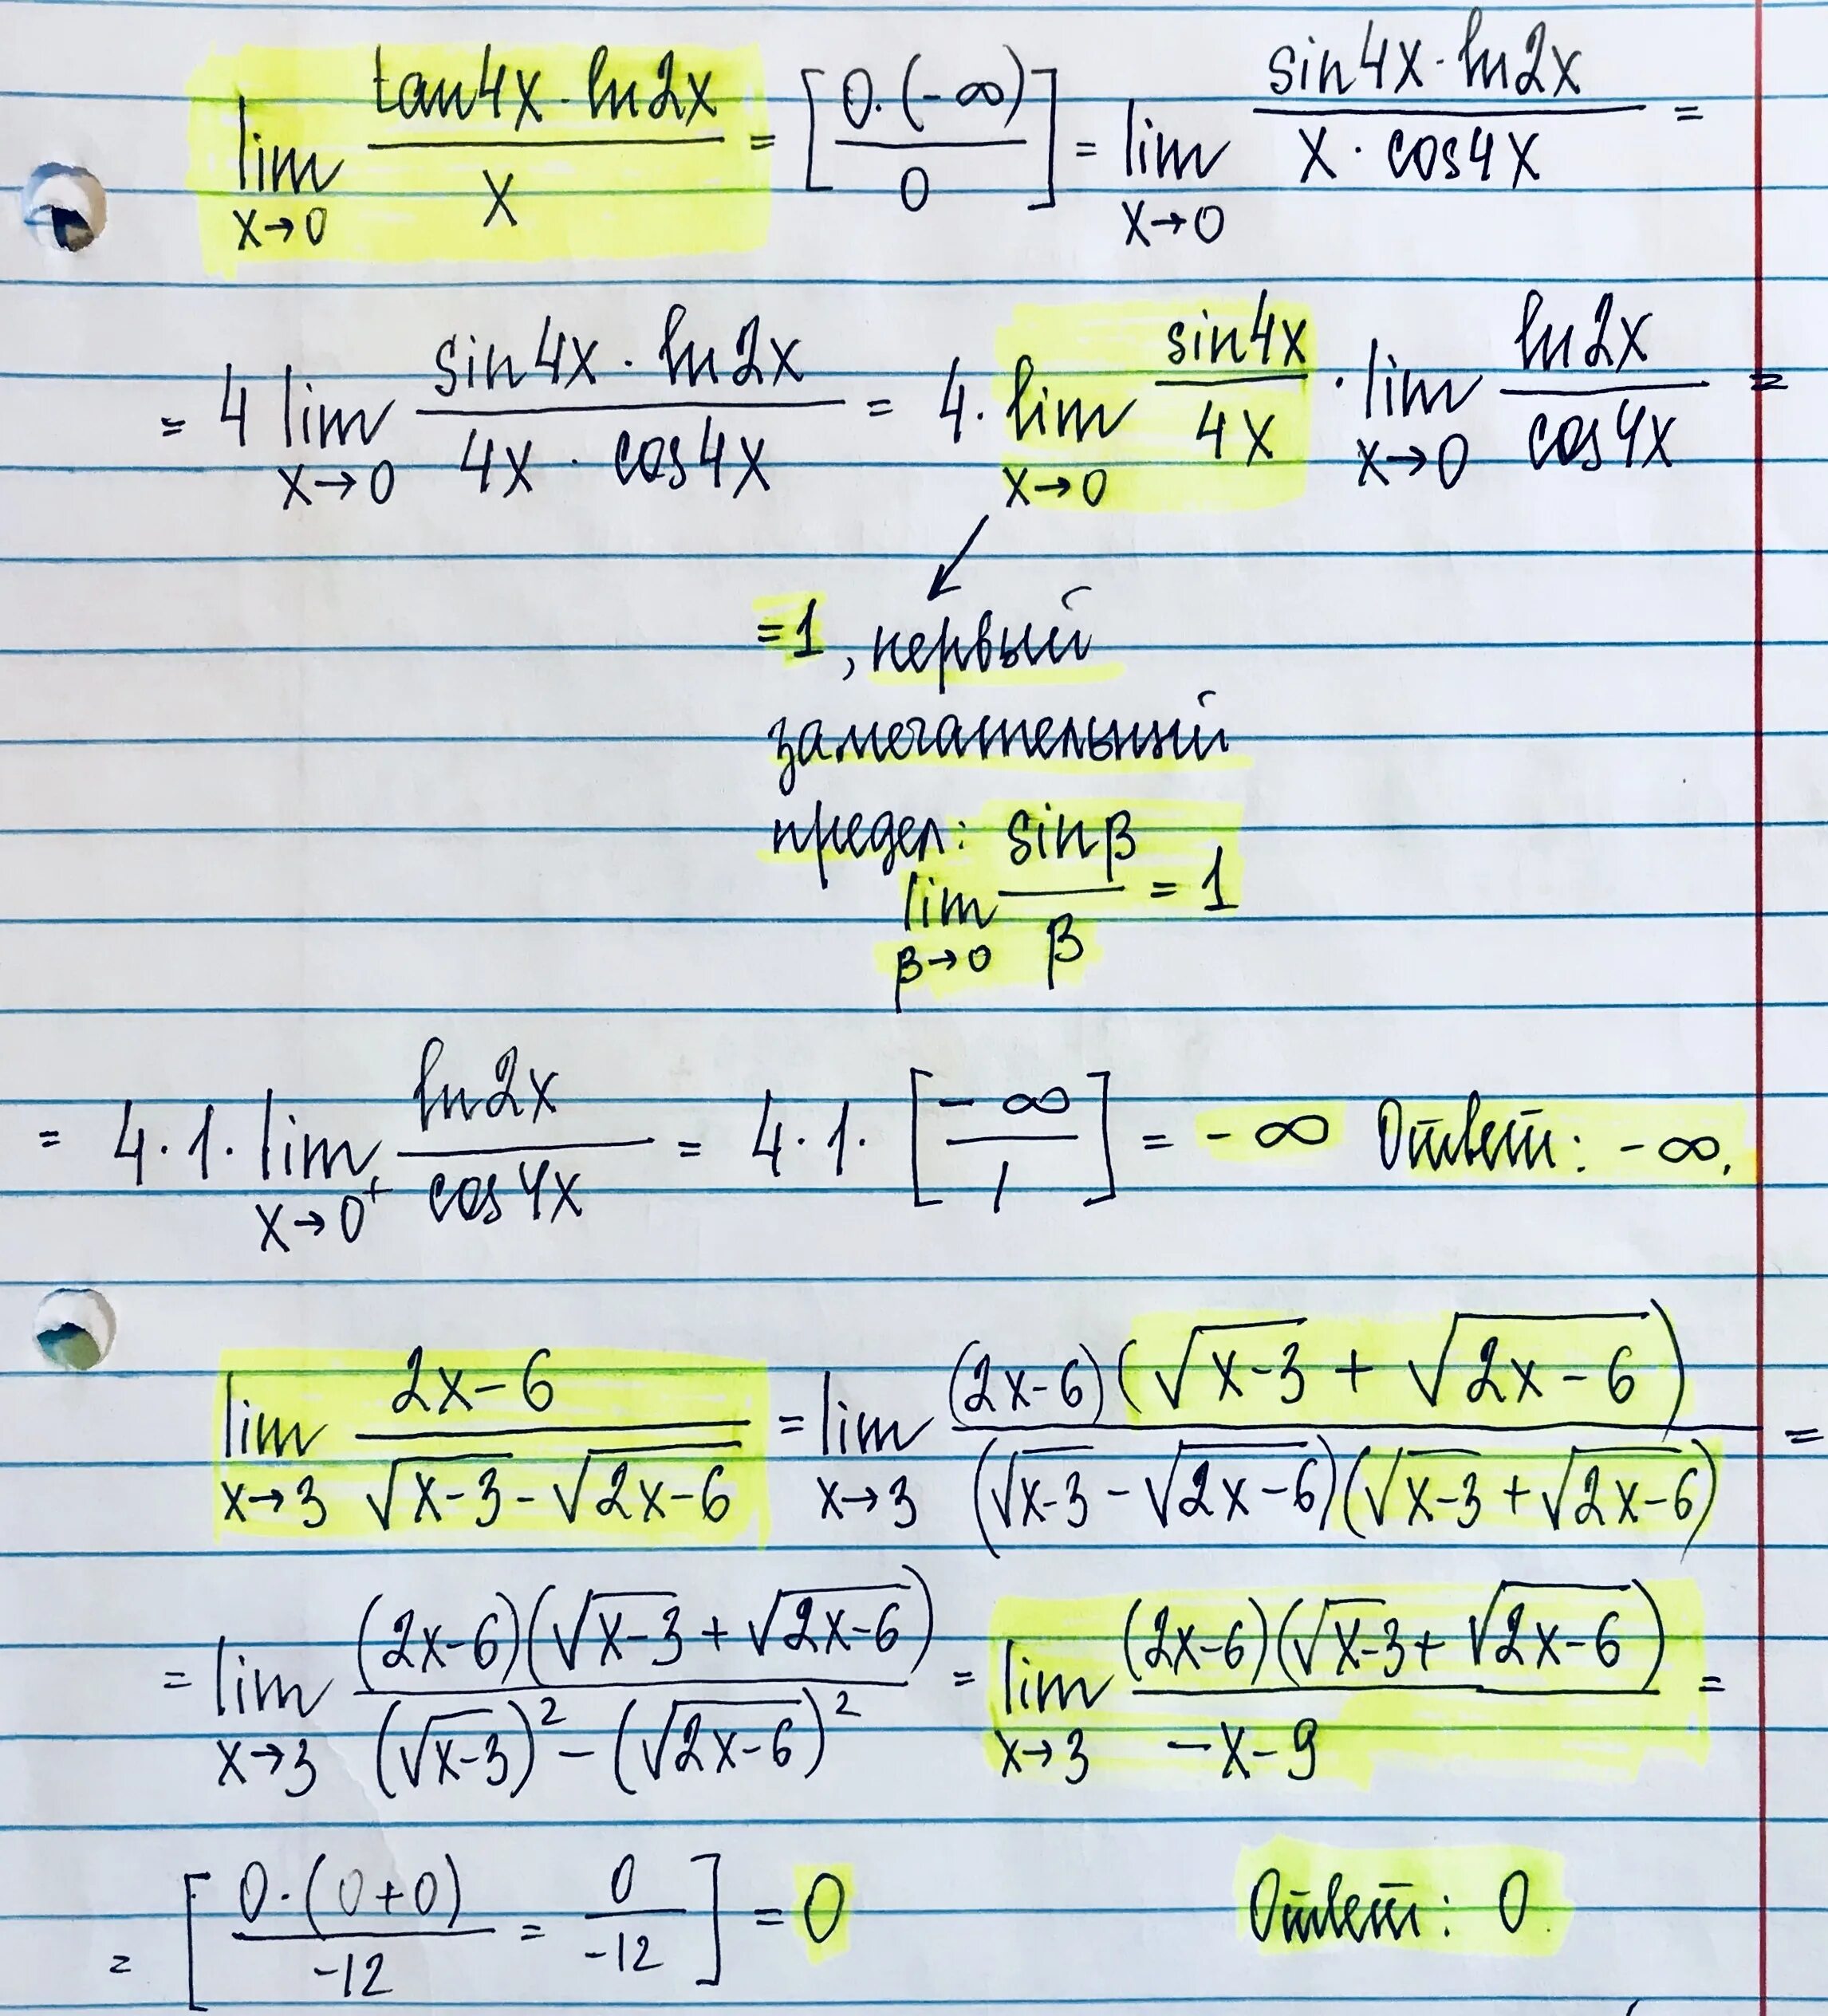 lim x→0 (tan4x · ln2x)/x = [(0·(-∞))/0] = lim x→0 (sin4x · ln2x)/(x · cos4x) =
= 4 lim x→0 (sin4x · ln2x)/(4x · cos4x) = 4 · lim x→0 sin4x/4x · lim x→0 ln2x/cos4x =
=1, первый
замечательный
предел: lim β→0 sinβ/β = 1
= 4·1· lim x→0⁺ ln2x/cos4x = 4·1· [-∞/1] = -∞ Ответ: -∞.
lim x→3 (2x-6)/(√(x-3) - √(2x-6)) = lim x→3 ((2x-6)(√(x-3) + √(2x-6)))/((√(x-3) - √(2x-6))(√(x-3) + √(2x-6))) =
= lim x→3 ((2x-6)(√(x-3) + √(2x-6)))/((√(x-3))² - (√(2x-6))²) = lim x→3 ((2x-6)(√(x-3) + √(2x-6)))/(-x-9) =
= [(0·(0+0))/-12 = 0/-12] = 0 Ответ: 0.